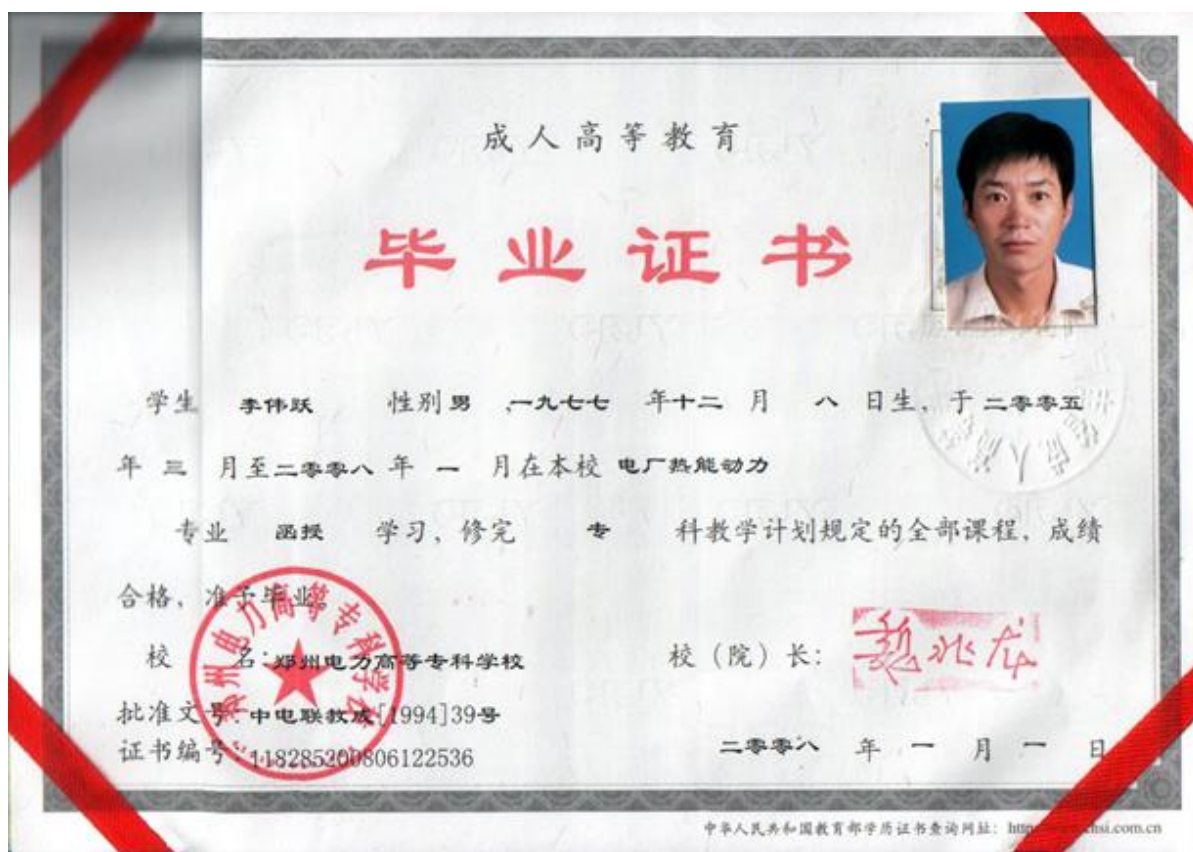 成人高等教育
毕业证书
学生 李伟跃 性别 男 一九七七 年 十二 月 八 日生，于 二零零五
年 三 月至 二零零八 年 一 月在本校 电厂热能动力
专业 函授 学习，修完 专 科教学计划规定的全部课程，成绩
合格，准予毕业。
郑州电力高等专科学校
校 名：郑州电力高等专科学校 校（院）长：
批准文号：中电联教成[1994]39号
证书编号：118285200806122536 二零零八 年 一 月 一 日
中华人民共和国教育部学历证书查询网址：